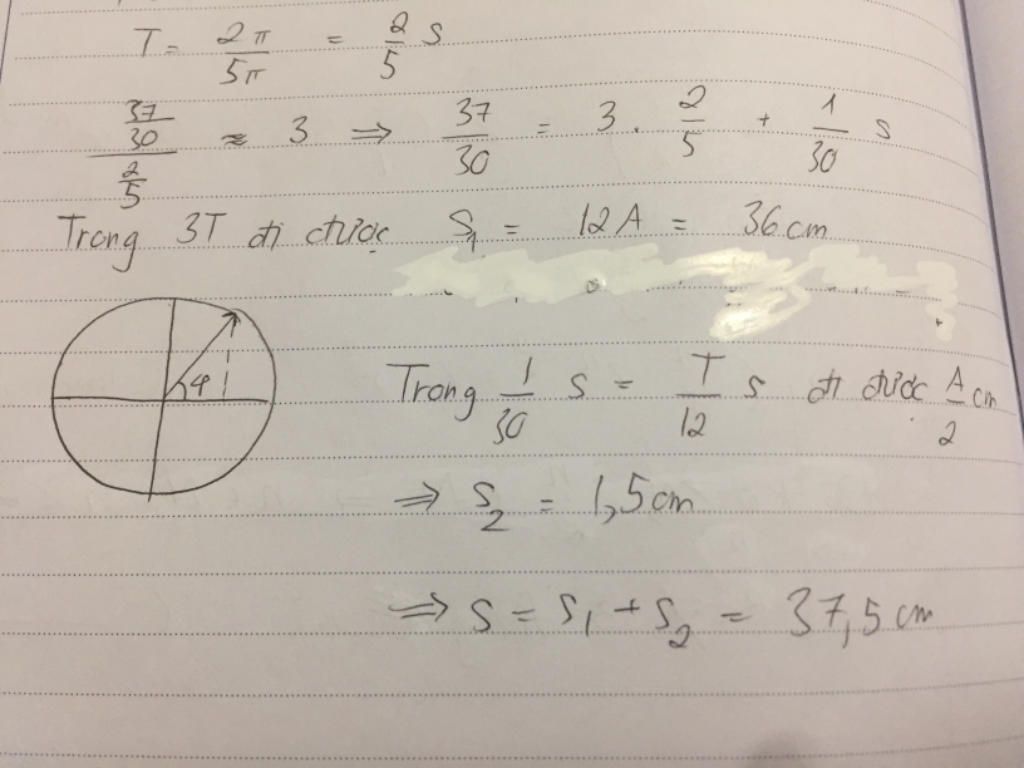 T = 2π/5π = 2/5 s
(37/30)/(2/5) ≈ 3 ⇒ 37/30 = 3 . 2/5 + 1/30 s
Trong 3T đi được S₁ = 12A = 36 cm
φ
Trong 1/30 s = T/12 s đi được A/2 cm
⇒ S₂ = 1,5 cm
⇒ S = S₁ + S₂ = 37,5 cm